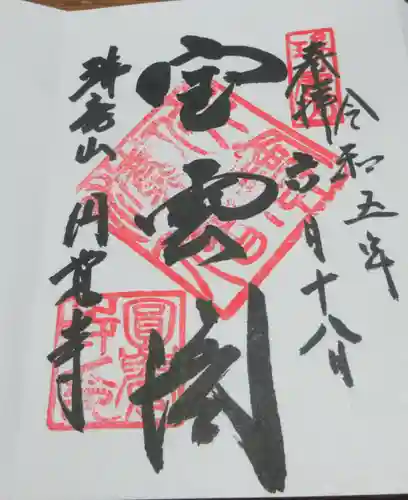 令和五年
奉拝 六月十八日
宝雲閣
瑞鹿山 円覚寺